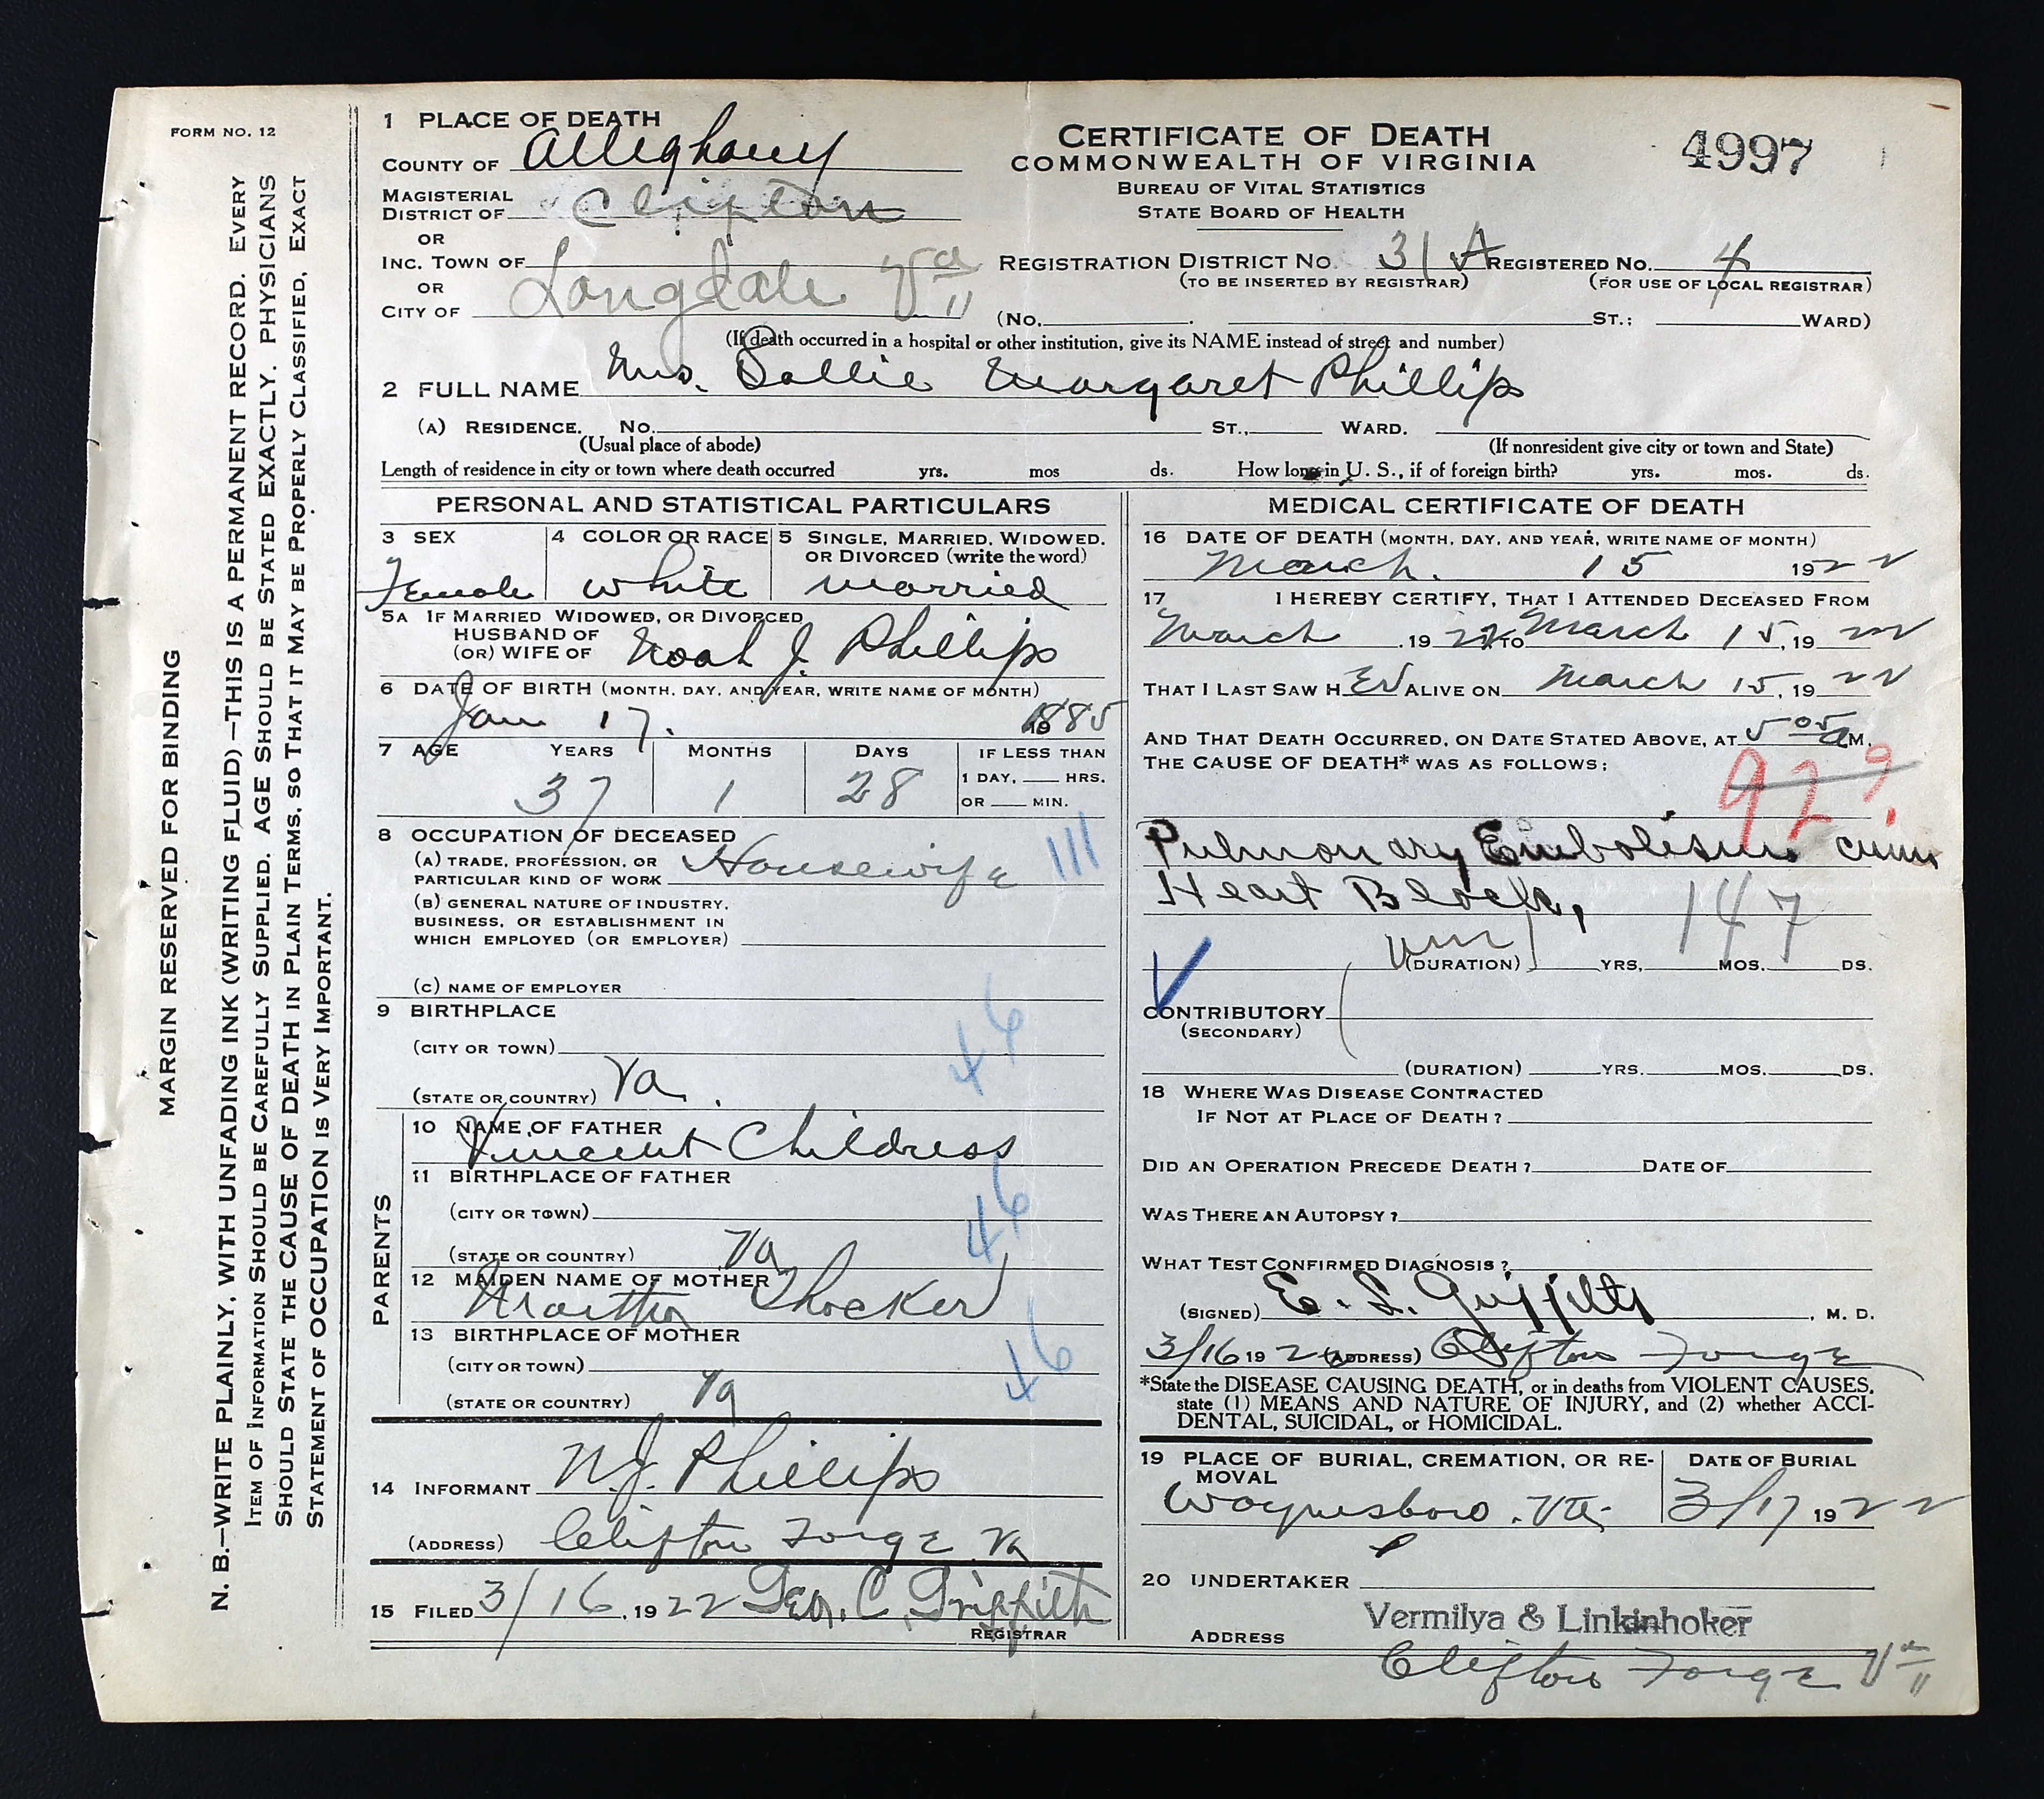 FORM NO. 12
MARGIN RESERVED FOR BINDING
N. B.—WRITE PLAINLY, WITH UNFADING INK (WRITING FLUID)—THIS IS A PERMANENT RECORD. EVERY
ITEM OF INFORMATION SHOULD BE CAREFULLY SUPPLIED. AGE SHOULD BE STATED EXACTLY. PHYSICIANS
SHOULD STATE THE CAUSE OF DEATH IN PLAIN TERMS, SO THAT IT MAY BE PROPERLY CLASSIFIED. EXACT
STATEMENT OF OCCUPATION IS VERY IMPORTANT.
1 PLACE OF DEATH
COUNTY OF Alleghany
MAGISTERIAL
DISTRICT OF Clifton
OR
INC. TOWN OF
OR
CITY OF Longdale Va
CERTIFICATE OF DEATH
COMMONWEALTH OF VIRGINIA
BUREAU OF VITAL STATISTICS
STATE BOARD OF HEALTH
4997
REGISTRATION DISTRICT NO. 31 A REGISTERED NO. 4
(TO BE INSERTED BY REGISTRAR) (FOR USE OF LOCAL REGISTRAR)
(NO. ST.; WARD)
(If death occurred in a hospital or other institution, give its NAME instead of street and number)
2 FULL NAME Mrs. Sallie Margaret Phillips
(A) RESIDENCE. NO. ST., WARD.
(Usual place of abode) (If nonresident give city or town and State)
Length of residence in city or town where death occurred yrs. mos ds. How long in U. S., if of foreign birth? yrs. mos. ds.
PERSONAL AND STATISTICAL PARTICULARS
3 SEX 4 COLOR OR RACE 5 SINGLE, MARRIED, WIDOWED,
OR DIVORCED (write the word)
Female white married
5A IF MARRIED WIDOWED, OR DIVORCED
HUSBAND OF
(OR) WIFE OF Noah J. Phillips
6 DATE OF BIRTH (MONTH, DAY, AND YEAR, WRITE NAME OF MONTH)
Jan 17. 1885
7 AGE YEARS MONTHS DAYS IF LESS THAN
1 DAY, HRS.
OR MIN.
37 1 28
8 OCCUPATION OF DECEASED
(A) TRADE, PROFESSION, OR
PARTICULAR KIND OF WORK Housewife 111
(B) GENERAL NATURE OF INDUSTRY,
BUSINESS, OR ESTABLISHMENT IN
WHICH EMPLOYED (OR EMPLOYER)
(C) NAME OF EMPLOYER
9 BIRTHPLACE
(CITY OR TOWN) 46
(STATE OR COUNTRY) Va.
PARENTS
10 NAME OF FATHER
Vincent Childress
11 BIRTHPLACE OF FATHER
(CITY OR TOWN) 46
(STATE OR COUNTRY) Va
12 MAIDEN NAME OF MOTHER
Martha
13 BIRTHPLACE OF MOTHER
(CITY OR TOWN) 46
(STATE OR COUNTRY) Va
14 INFORMANT N.J. Phillips
(ADDRESS) Clifton Forge Va
15 FILED 3/16, 1922 Geo. C. Griffith
REGISTRAR
MEDICAL CERTIFICATE OF DEATH
16 DATE OF DEATH (MONTH, DAY, AND YEAR, WRITE NAME OF MONTH)
March. 15 1922
17 I HEREBY CERTIFY, THAT I ATTENDED DECEASED FROM
March , 1922, TO March 15, 1922
THAT I LAST SAW HER ALIVE ON March 15, 1922
AND THAT DEATH OCCURRED, ON DATE STATED ABOVE, AT 5 05 a M.
THE CAUSE OF DEATH* WAS AS FOLLOWS:
92 9
Pulmonary Embolism
Heart Block, 147
(DURATION) YRS. MOS. DS.
CONTRIBUTORY
(SECONDARY)
(DURATION) YRS. MOS. DS.
18 WHERE WAS DISEASE CONTRACTED
IF NOT AT PLACE OF DEATH?
DID AN OPERATION PRECEDE DEATH? DATE OF
WAS THERE AN AUTOPSY?
WHAT TEST CONFIRMED DIAGNOSIS?
(SIGNED) E. L. Griffith, M. D.
3/16 1922 (ADDRESS) Clifton Forge
*State the DISEASE CAUSING DEATH, or in deaths from VIOLENT CAUSES,
state (1) MEANS AND NATURE OF INJURY, and (2) whether ACCI-
DENTAL, SUICIDAL, or HOMICIDAL.
19 PLACE OF BURIAL, CREMATION, OR RE-
MOVAL DATE OF BURIAL
Waynesboro, Va. 3/17 1922
20 UNDERTAKER
Vermilya & Linkinhoker
ADDRESS
Clifton Forge Va